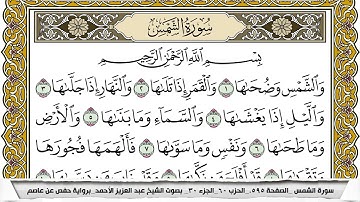 سُورَةُ الشَّمْسِ
بِسْمِ اللَّهِ الرَّحْمَٰنِ الرَّحِيمِ
وَالشَّمْسِ وَضُحَىٰهَا ١ وَالْقَمَرِ إِذَا تَلَىٰهَا ٢ وَالنَّهَارِ إِذَا جَلَّىٰهَا ٣
وَالَّيْلِ إِذَا يَغْشَىٰهَا ٤ وَالسَّمَآءِ وَمَا بَنَىٰهَا ٥ وَالْأَرْضِ
وَمَا طَحَىٰهَا ٦ وَنَفْسٍ وَمَا سَوَّىٰهَا ٧ فَأَلْهَمَهَا فُجُورَهَا
سورة الشمس _الصفحة ٥٩٥_ الحزب ٦٠_ الجزء ٣٠_ بصوت الشيخ عبد العزيز الأحمد_ برواية حفص عن عاصم